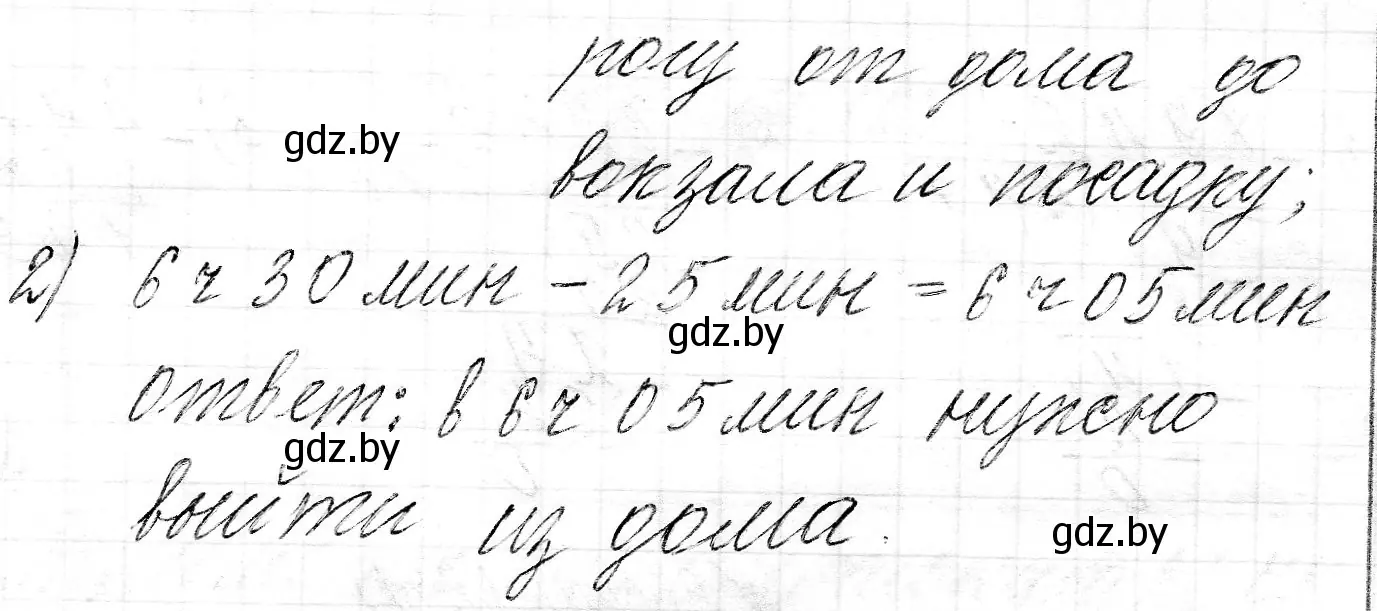 рогу от дома до
gdz.by
вокзала и посадку;
2) 6 ч 30 мин – 25 мин = 6 ч 05 мин
gdz.by
ответ: в 6 ч 05 мин нужно
gdz.by
выйти из дома.
gdz.by